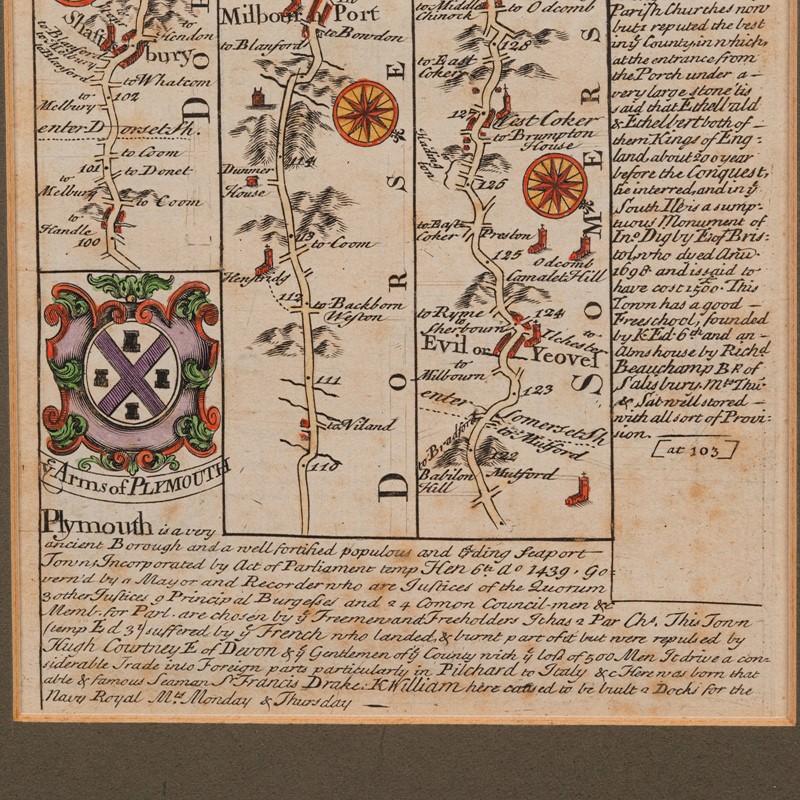 Shafts
bury
to Hendon
to Whatcom
102
to Melbury
enter Dorsetsh.
to Coom
101
to Donet
to Melbury
to Coom
to Handle
100
DO
Milbourn Port
to Blanford
to Bowdon
114
Dunner House
113
to Coom
Henstridg
112
to Backborn Weston
111
to Viland
110
DORSE
to Middle Chinock
to Odcomb
128
to East Coker
West Coker
to Brumpton House
126
to East Coker
Preston
125
Odcomb
Camalet Hill
124
to Ryme
to Sherbourn
to Ilchester
Evil or Yeovel
to Milbourn
123
enter Somersetsh
to Mudford
to Bradford
122
Babilon Hill
Mutford
SOMERS
Parish Churches now
but 2 reputed the best
in yͤ County, in which,
at the entrance from
the Porch under a
very large stone tis
said that Ethellvald
& Ethelbert both of
them Kings of Eng-
land, about 200 year
before the Conquest,
lie interred, and in yͤ
South Ile is a sump-
tuous Monument of
Jnᵒ Digby E of Bris:
tol, who dyed Anᵒ
1698 and is said to
have cost 1500. This
Town has a good
Free school, founded
by K Ed 6th and an
Alms house by Richd
Beauchamp Bp of
Salisbury. Mt Thu:
& Sat well stored
with all sort of Provi-
sion.
at 103
yͤ Arms of PLYMOUTH
Plymouth is a very
ancient Borough and a well fortified populous and trading Seaport
Town, Incorporated by Act of Parliament temp Hen 6th Aᵒ 1439. Go-
vern'd by a Mayor and Recorder who are Justices of the Quorum
3 other Justices 9 Principal Burgesses and 24 Comon Council-men &c
Memb. for Parl. are chosen by yͤ Freemen and Freeholders It has 2 Par Chs. This Town
(temp Ed 3d) suffered by yͤ French who landed, & burnt part of it but were repulsed by
Hugh Courtney E of Devon & yͤ Gentlemen of yͤ County with yͤ loss of 500 Men It drive a con-
siderable Trade into Foreign parts particularly in Pilchard to Italy &c Here was born that
able & famous Seaman Sr Francis Drake. K William here caused to be built 2 Docks for the
Navy Royal Mts Monday & Thursday